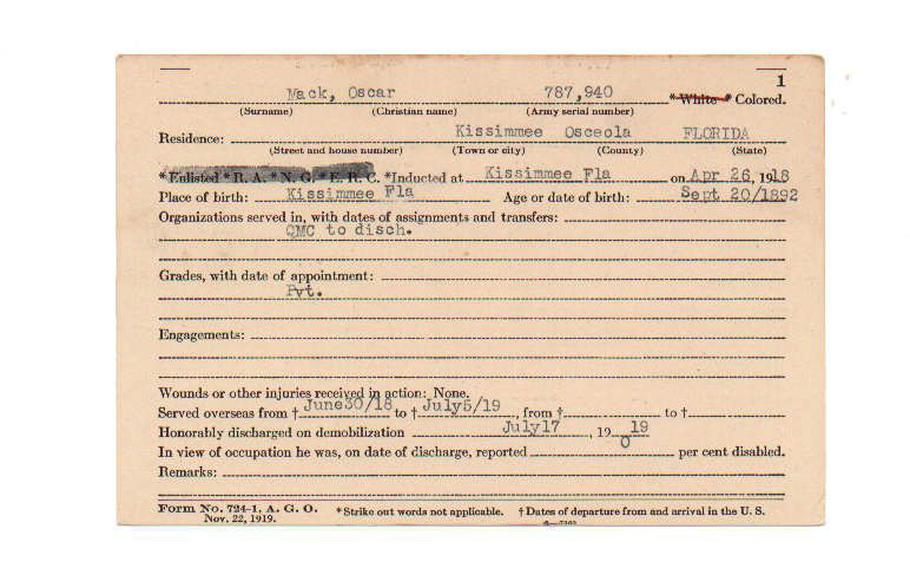 1
Mack, Oscar 787,940 *White * Colored.
(Surname) (Christian name) (Army serial number)
Residence: Kissimmee Osceola FLORIDA
(Street and house number) (Town or city) (County) (State)
*Enlisted *R. A. *N. G. *E. R. C. *Inducted at Kissimmee Fla on Apr 26, 1918
Place of birth: Kissimmee Fla Age or date of birth: Sept 20/1892
Organizations served in, with dates of assignments and transfers:
QMC to disch.
Grades, with date of appointment:
Pvt.
Engagements:
Wounds or other injuries received in action: None.
Served overseas from † June30/18 to † July5/19, from † to †
Honorably discharged on demobilization July17, 19 19
In view of occupation he was, on date of discharge, reported 0 per cent disabled.
Remarks:
Form No. 724-1, A. G. O. *Strike out words not applicable. †Dates of departure from and arrival in the U. S.
Nov. 22, 1919.